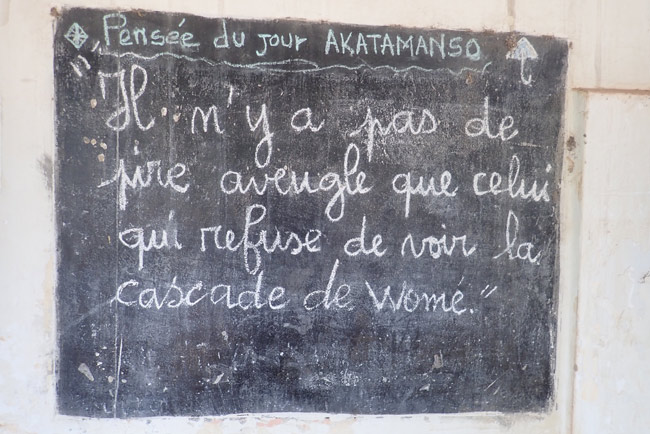 Pensée du jour AKATAMANSO
"Il n'y a pas de
pire aveugle que celui
qui refuse de voir la
cascade de Womé."